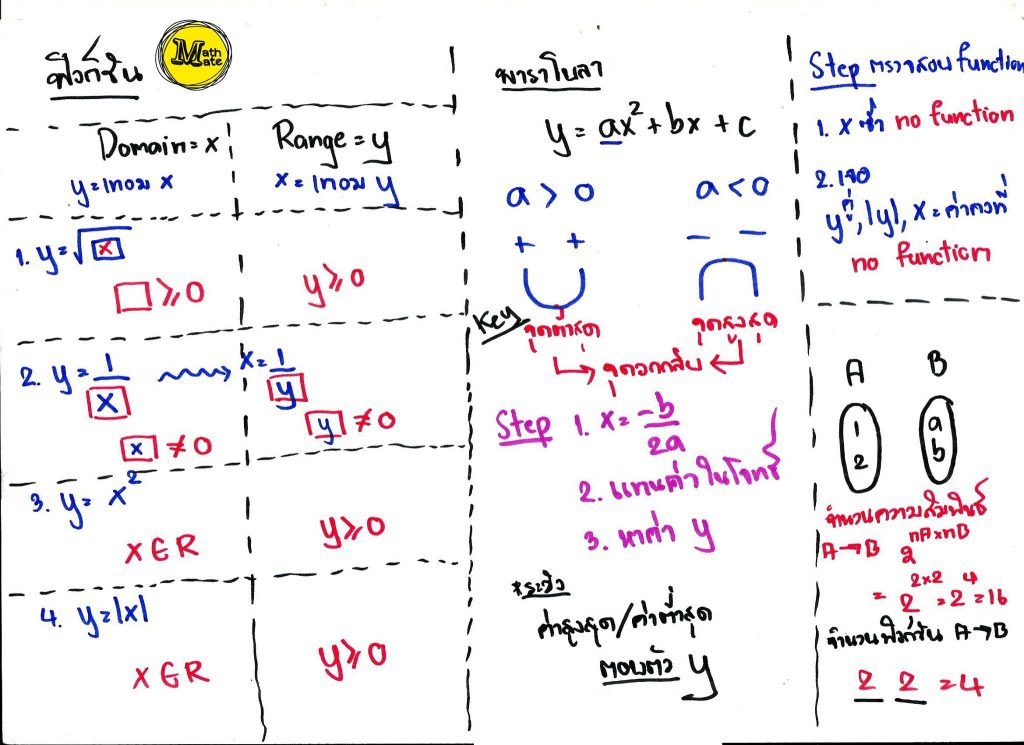 ฟังก์ชัน
Math Mate
Domain = x
Range = y
y = เทอม x
x = เทอม y
1. y = √x
□ ≥ 0
y ≥ 0
2. y = 1/x
x = 1/y
x ≠ 0
y ≠ 0
3. y = x²
x ∈ R
y ≥ 0
4. y = |x|
x ∈ R
y ≥ 0
พาราโบลา
y = ax² + bx + c
a > 0
a < 0
+ +
− −
Key
จุดต่ำสุด
จุดสูงสุด
จุดวกกลับ
Step 1. x = -b/2a
2. แทนค่าในโจทย์
3. หาค่า y
*ระวัง
ค่าสูงสุด/ค่าต่ำสุด
ตอบตัว y
Step ตรวจสอบ function
1. x ซ้ำ no function
2. เจอ
y คู่, |y|, x = ค่าคงที่
no function
A B
1 a
2 b
จำนวนความสัมพันธ์
A → B 2^nA×nB
= 2^2×2 = 2^4 = 16
จำนวนฟังก์ชัน A → B
2 2 = 4